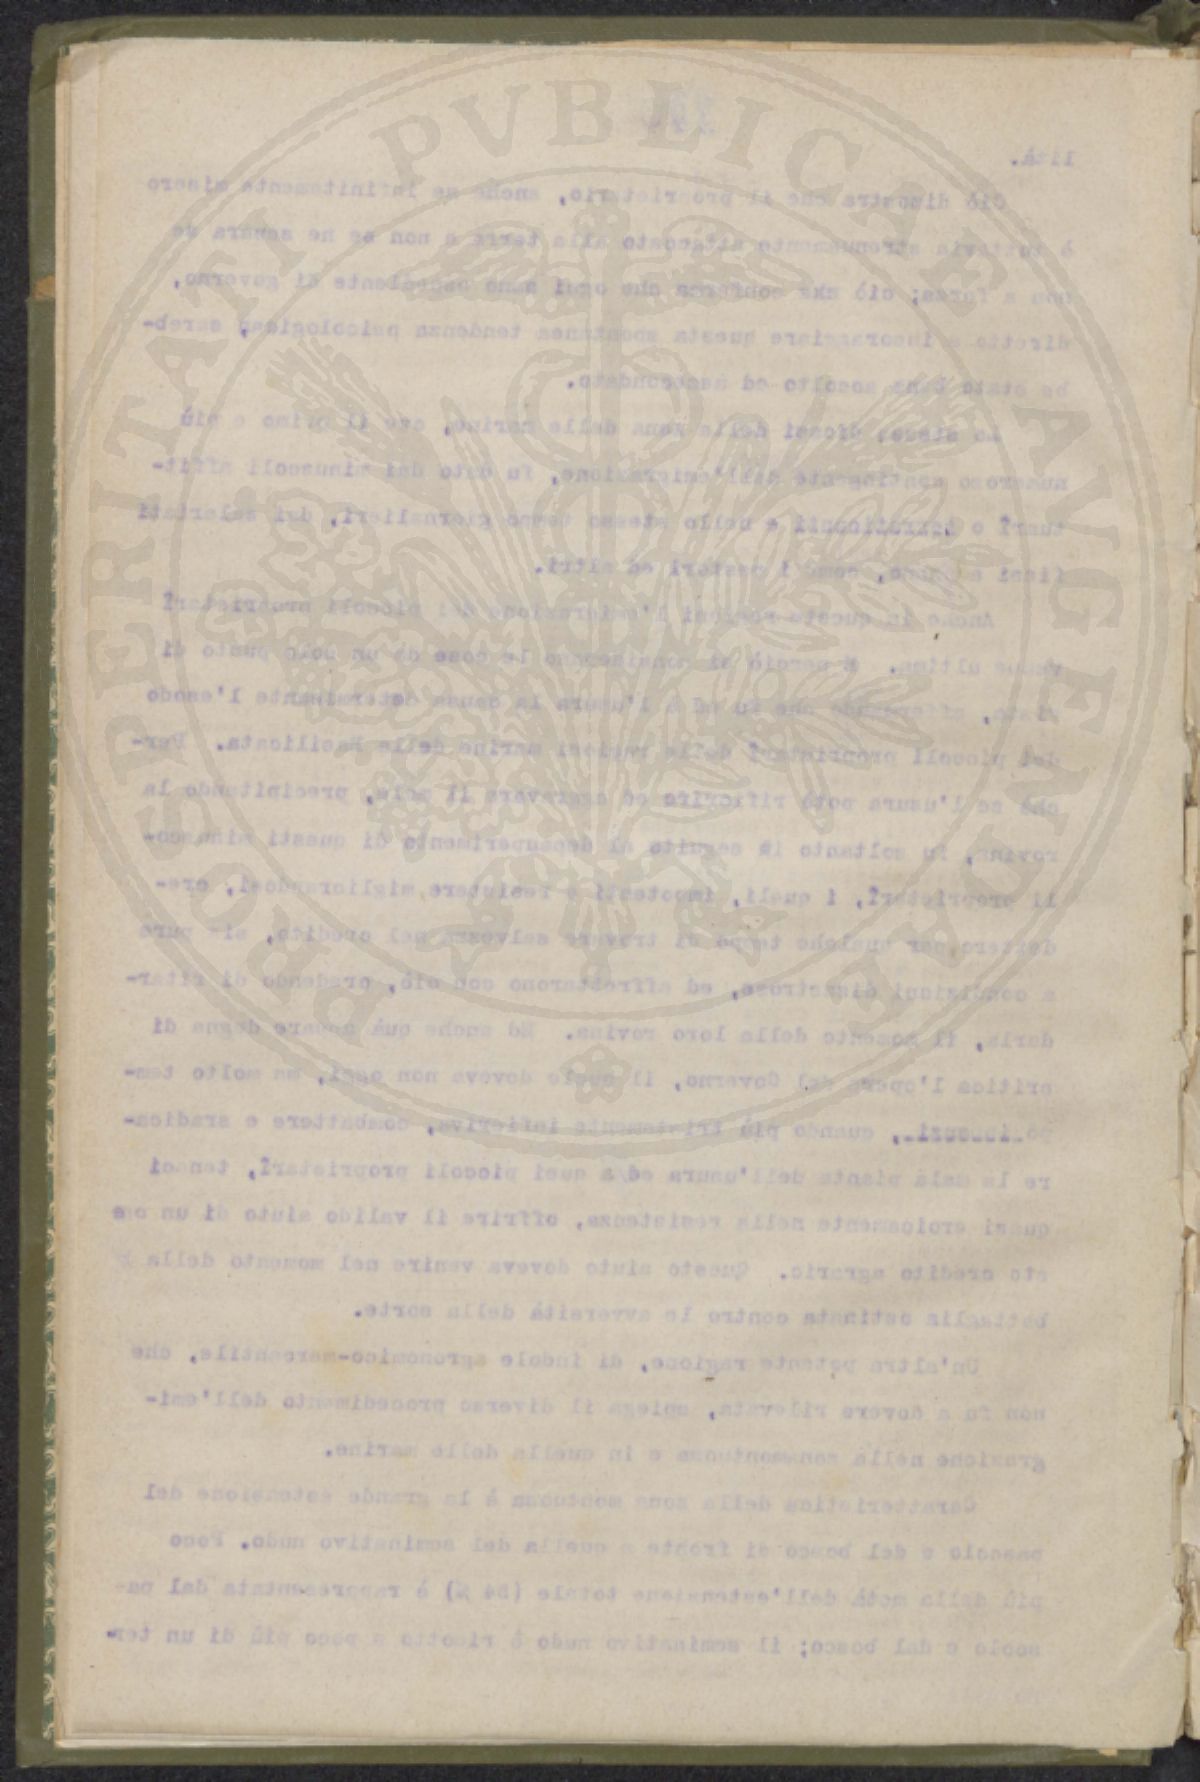 lità.
Ciò dimostra che il proprietario, anche se infinitamente misero
è tuttavia strenuamente attaccato alla terra e non se ne separa se
non a forza; ciò che conferma che ogni sano espediente di governo,
diretto a incoraggiare questa spontanea tendenza psicologica, sareb-
be stato bene accolto ed assecondato.
Lo stesso dicasi della zona delle marine, ove il primo e più
numeroso contingente dell'emigrazione, fu dato dai minuscoli affit-
tuarî e e nello stesso tempo giornalieri, dai salariati
fissi a anno, come i pastori ed altri.
Anche in queste regioni l'emigrazione dei piccoli proprietarî
venne ultima. E perciò si considerano le cose da un solo punto di
vista, affermando che fu ed è l'usura la causa determinante l'esodo
dei piccoli proprietarî delle regioni marine della Basilicata. Per-
chè se l'usura potè rifiorire ed aggravare il male, precipitando la
rovina, fu soltanto in seguito al depauperimento di questi minusco-
li proprietarî, i quali, impotenti a resistere migliorandosi, cre-
dettero per qualche tempo di trovare salvezza nel credito, sia pure
a condizioni disastrose, ed affrettarono con ciò, credendo di ritar-
darla, il momento della loro rovina. Ed anche quà appare degna di
critica l'opera del Governo, il quale doveva non oggi, ma molto tem-
po innanzi, quando più tristamente infieriva, combattere e sradica-
re la mala pianta dell'usura ed a quei piccoli proprietarî, tenaci
quasi eroicamente nella resistenza, offrire il valido aiuto di un one
sto credito agrario. Questo aiuto doveva venire nel momento della
battaglia ostinata contro le avversità della sorte.
Un'altra potente ragione, di indole agronomico-mercantile, che
non fu a dovere rilevata, spiega il diverso procedimento dell'emi-
grazione nella zona montuosa e in quella delle marine.
Caratteristica della zona montuosa è la grande estensione del
pascolo e del bosco di fronte a quella del seminativo nudo. Poco
più della metà dell'estensione totale (54 %) è rappresentata dal pa-
scolo e dal bosco; il seminativo nudo è ridotto a poco più di un ter-
PROSPERITATI PVBLICAE AVGENDAE